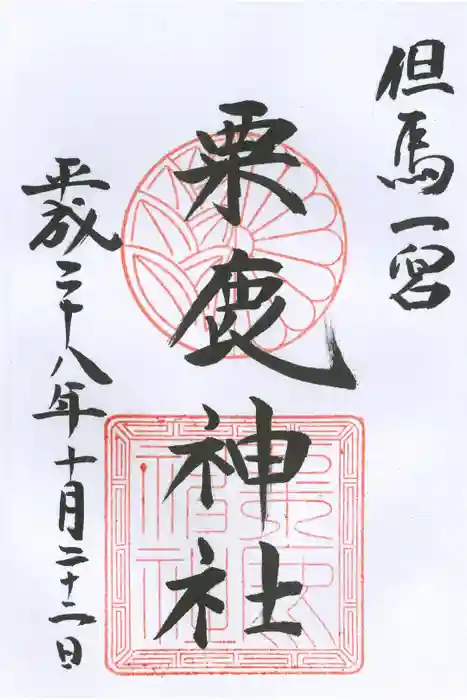 但馬一宮
粟鹿神社
平成二十八年十月二十二日